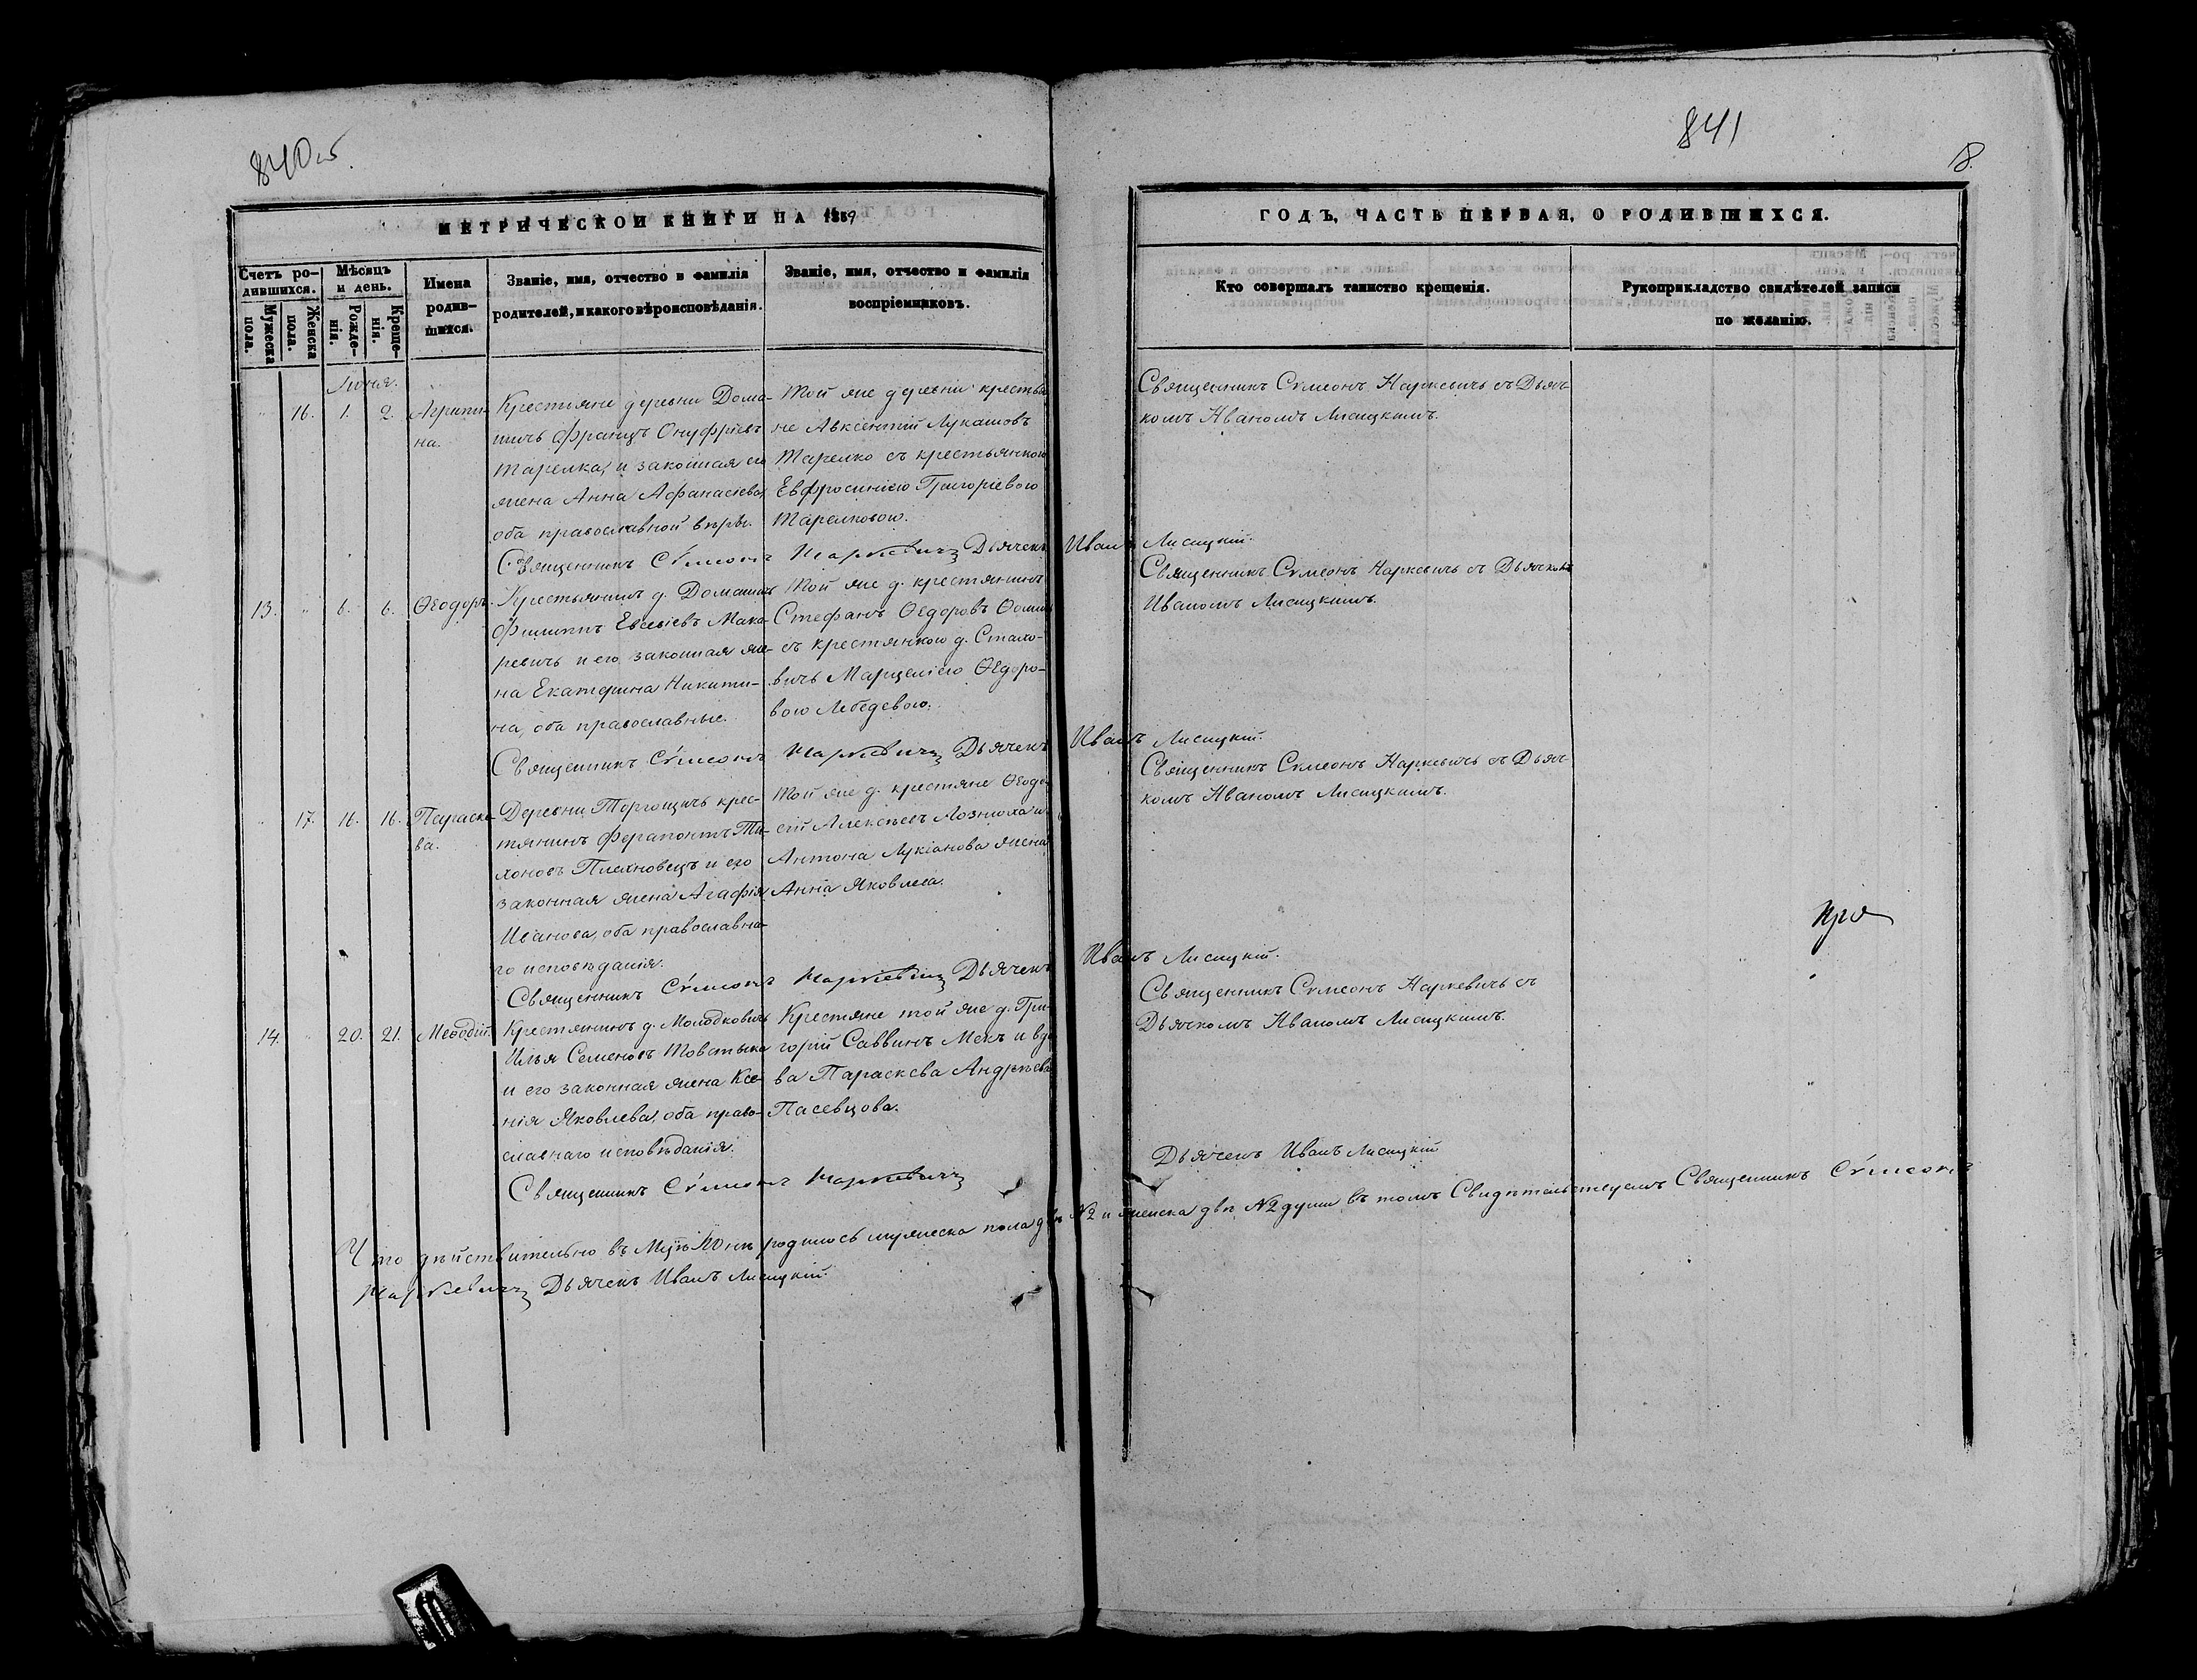 840об.
841
18.
МЕТРИЧЕСКОЙ КНИГИ НА 1869
ГОДЪ, ЧАСТЬ ПЕРВАЯ, О РОДИВШИХСЯ.
Счетъ родившихся.
Мужеска пола.
Женска пола.
Мѣсяцъ и день.
Рожденія.
Крещенія.
Имена родившихся.
Званіе, имя, отчество и фамилія
родителей, и какого вѣроисповѣданія.
Званіе, имя, отчество и фамилія
воспріемниковъ.
Кто совершалъ таинство крещенія.
Рукоприкладство свидѣтелей записи
по желанію.
Іюня.
" 16. 1. 2. Агрипи-
на.
Крестьяне деревни Дома-
шичь Францъ Онуфріевъ
Тарелка, и законная его
жена Анна Афанасіева,
оба православной вѣры.
Той же деревни крестья-
не Авксентій Лукашовъ
Тарелко съ крестьянкою
Евфросиніею Григоріевою
Тарелковою.
Священникъ Сѵмеонъ Наркевичь съ Дьяч-
комъ Иваномъ Лисицкимъ.
Священникъ Сѵмеонъ Наркевичъ Дьячекъ Иванъ Лисицкій.
13. " 6. 6. Ѳеодоръ.
Крестьянинъ д. Домашичь
Филиппъ Евсевіевъ Мака-
ревичь и его законная же-
на Екатерина Никити-
на, оба православные.
Той же д. крестянинъ
Стефанъ Ѳедоровъ Ѳоминъ
съ крестянкою д. Стахо-
вичь Марцеліею Ѳедоро-
вою Лебедевою.
Священникъ Сѵмеонъ Наркевичь съ Дьячкомъ
Иваномъ Лисицкимъ.
Священникъ Сѵмеонъ Наркевичъ Дьячекъ Иванъ Лисицкій.
" 17. 16. 16. Параске-
ва.
Деревни Торгощичь крес-
тянинъ Ферапонтъ Ти-
хоновъ Плехновецъ и его
законная жена Агафія
Иванова, оба православна-
го исповѣданія.
Той же д. крестяне Ѳеодо-
сій Алексѣевъ Лознюха и
Антона Лукіанова жена
Анна Яковлева.
Священникъ Сѵмеонъ Наркевичь съ Дьяч-
комъ Иваномъ Лисицкимъ.
Священникъ Сѵмеонъ Наркевичъ Дьячекъ Иванъ Лисицкій.
14. " 20. 21. Меѳодій.
Крестянинъ д. Молодковичь
Илья Семеновъ Товстыка
и его законная жена Ксе-
нія Яковлева, оба право-
славнаго исповѣданія.
Крестяне той же д. Гри-
горій Саввинъ Мекъ и вдо-
ва Параскева Андрѣева
Пасевцова.
Священникъ Сѵмеонъ Наркевичь съ
Дьячкомъ Иваномъ Лисицкимъ.
Священникъ Сѵмеонъ Наркевичъ Дьячекъ Иванъ Лисицкій
Что дѣйствительно въ Мцѣ Юнѣ родилось мужеска пола два №2 и женска двѣ №2 души въ томъ Свидѣтельствуемъ Священникъ Сѵмеонъ
Наркевичъ Дьячекъ Иванъ Лисицкій.